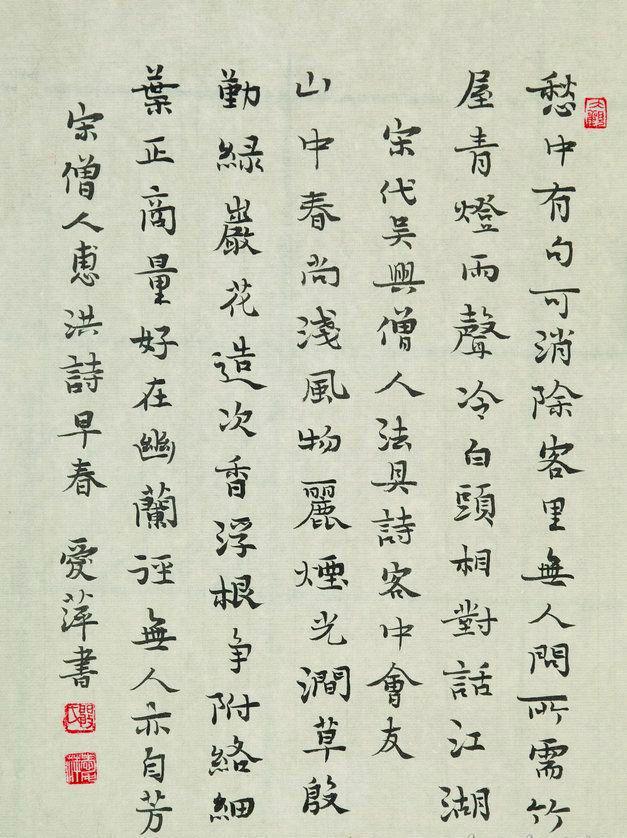 愁中有句可消除客里無人問所需竹
屋青燈雨聲冷白頭相對話江湖
宋代吴興僧人法具詩客中會友
山中春尚淺風物麗煙光澗草殷
勤緑巖花造次香浮根争附絡細
葉正商量好在幽蘭徑無人亦自芳
宋僧人惠洪詩早春 愛萍書